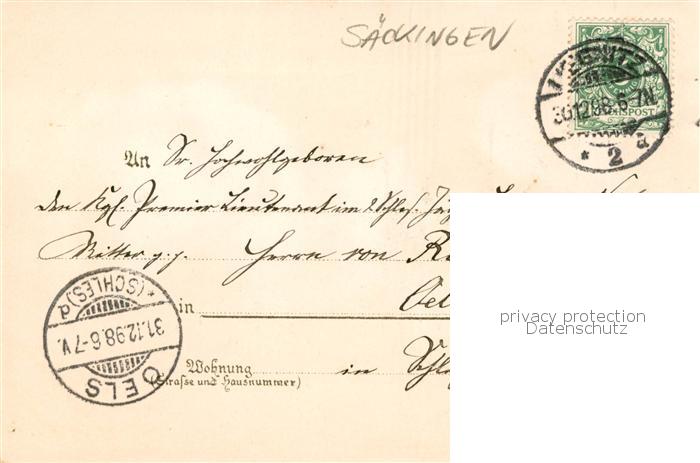 SÄCKINGEN
30.12.98.6-7N.
REICHSPOST
* 2 a
An Sr. Hochwohlgeboren
den Kgl. Premier Lieutenant im 2 Schles. Jäg
Ritter p.p. Herrn von Re
in Oel
Wohnung in Schl
(Straße und Hausnummer)
OELS
31.12.98.6-7V.
*(SCHLES)a
privacy protection
Datenschutz